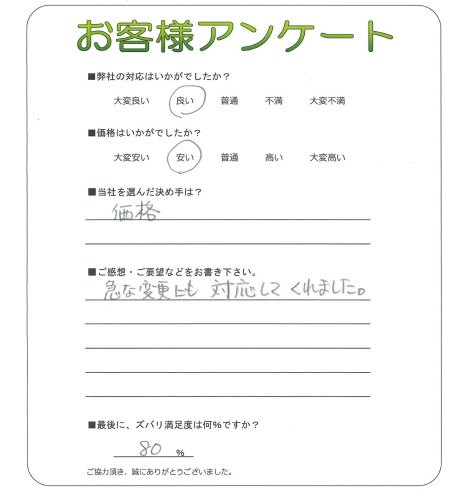 お客様アンケート
■弊社の対応はいかがでしたか？
大変良い 良い 普通 不満 大変不満
■価格はいかがでしたか？
大変安い 安い 普通 高い 大変高い
■当社を選んだ決め手は？
価格
■ご感想・ご要望などをお書き下さい。
急な変更にも 対応して くれました。
■最後に、ズバリ満足度は何％ですか？
80 ％
ご協力頂き、誠にありがとうございました。